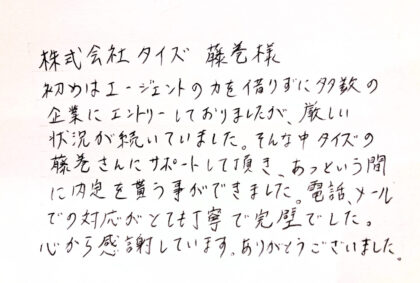 株式会社タイズ 藤巻様
初めはエージェントの力を借りずに多数の
企業にエントリーしておりましたが、厳しい
状況が続いていました。そんな中タイズの
藤巻さんにサポートして頂き、あっという間
に内定を貰う事ができました。電話、メール
での対応がとても丁寧で完璧でした。
心から感謝しています。ありがとうございました。